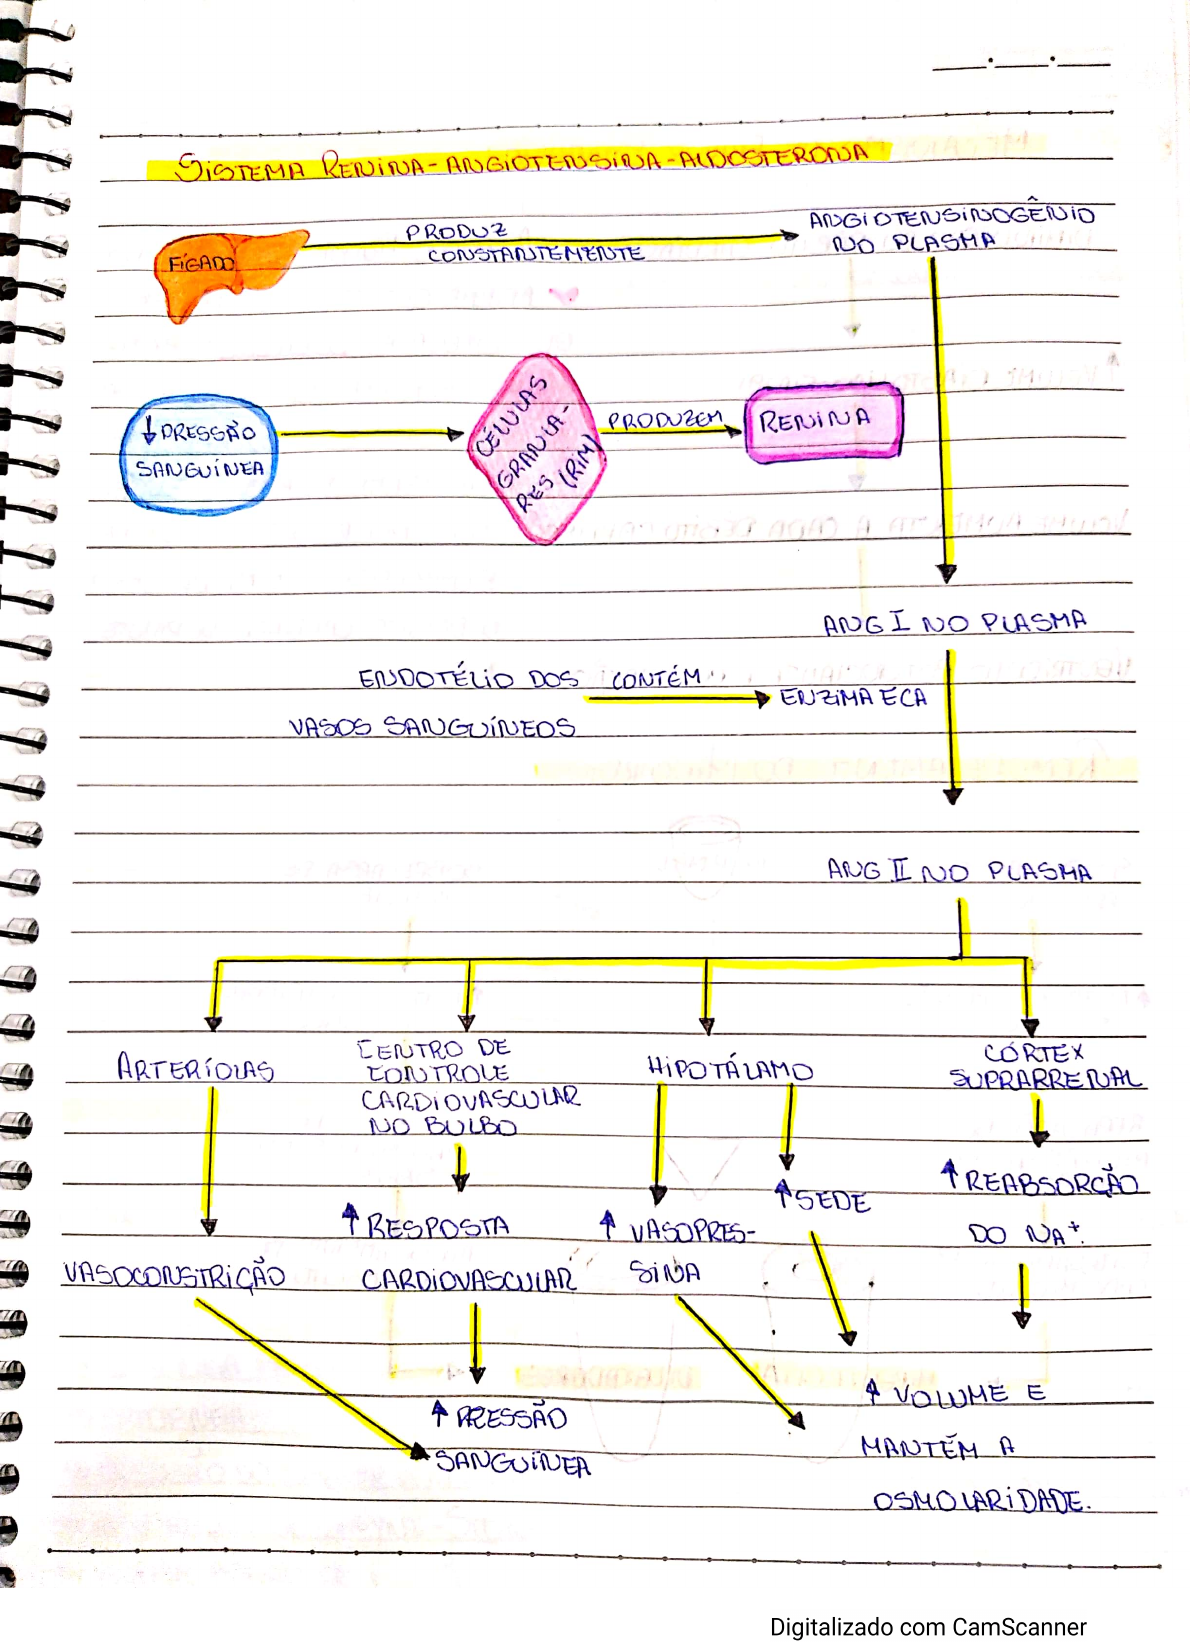 SISTEMA RENINA-ANGIOTENSINA-ALDOSTERONA
FÍGADO
PRODUZ
CONSTANTEMENTE
ANGIOTENSINOGÊNIO
NO PLASMA
↓ PRESSÃO
SANGUÍNEA
CÉLULAS
GRANULA-
RES (RIM)
PRODUZEM
RENINA
ANG I NO PLASMA
ENDOTÉLIO DOS CONTÉM
ENZIMA ECA
VASOS SANGUÍNEOS
ANG II NO PLASMA
ARTERÍOLAS
CENTRO DE
CONTROLE
CARDIOVASCULAR
NO BULBO
HIPOTÁLAMO
CÓRTEX
SUPRARRENAL
VASOCONSTRIÇÃO
↑ RESPOSTA
CARDIOVASCULAR
↑ VASOPRES-
SINA
↑ SEDE
↑ REABSORÇÃO
DO NA+.
↑ PRESSÃO
SANGUÍNEA
↑ VOLUME E
MANTÉM A
OSMOLARIDADE.
Digitalizado com CamScanner